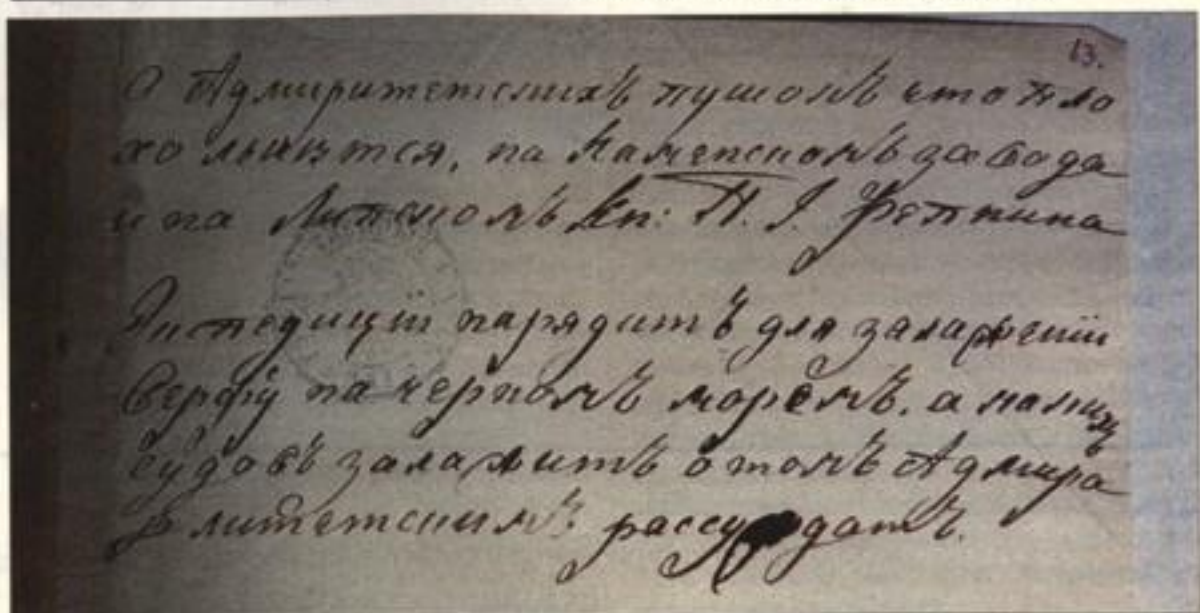 13.
О Адмиритетскихъ пушокъ что пло
хо льются, на Каменскомъ завода
и на Липскомъ Кн: П. I. Репнина
Экспедиций нарядитъ для заложений
Верфу на черномъ моремъ. а какихъ
судовъ заложитъ о томъ Адмира
литетскимъ рассуждатъ.